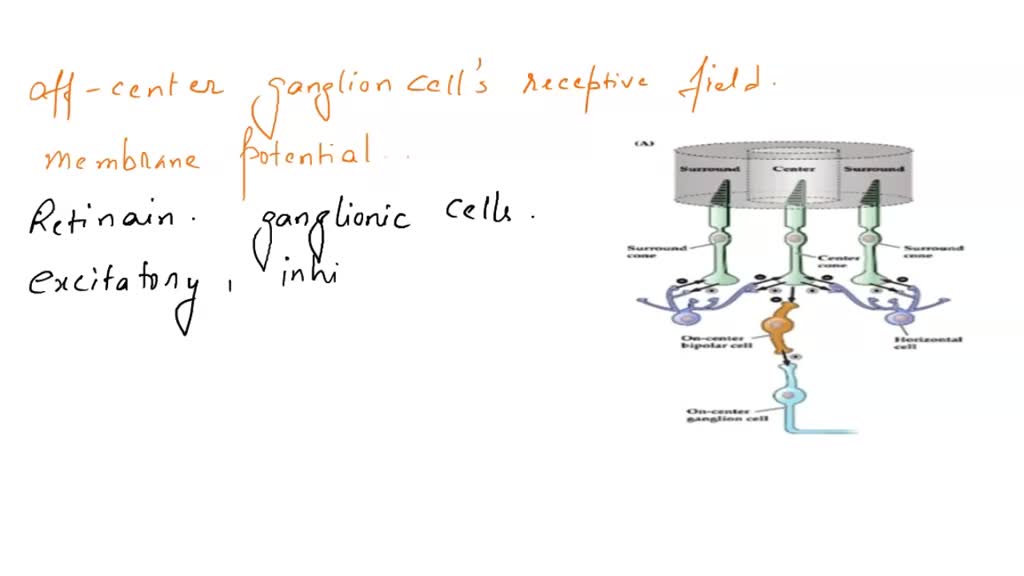 off-center ganglion cell's receptive field.
membrane potential
Retinain. ganglionic cells.
excitatory, inhi
(A)
Surround Center Surround
Surround cone
Center cone
Surround cone
On-center bipolar cell
Horizontal cell
On-center ganglion cell